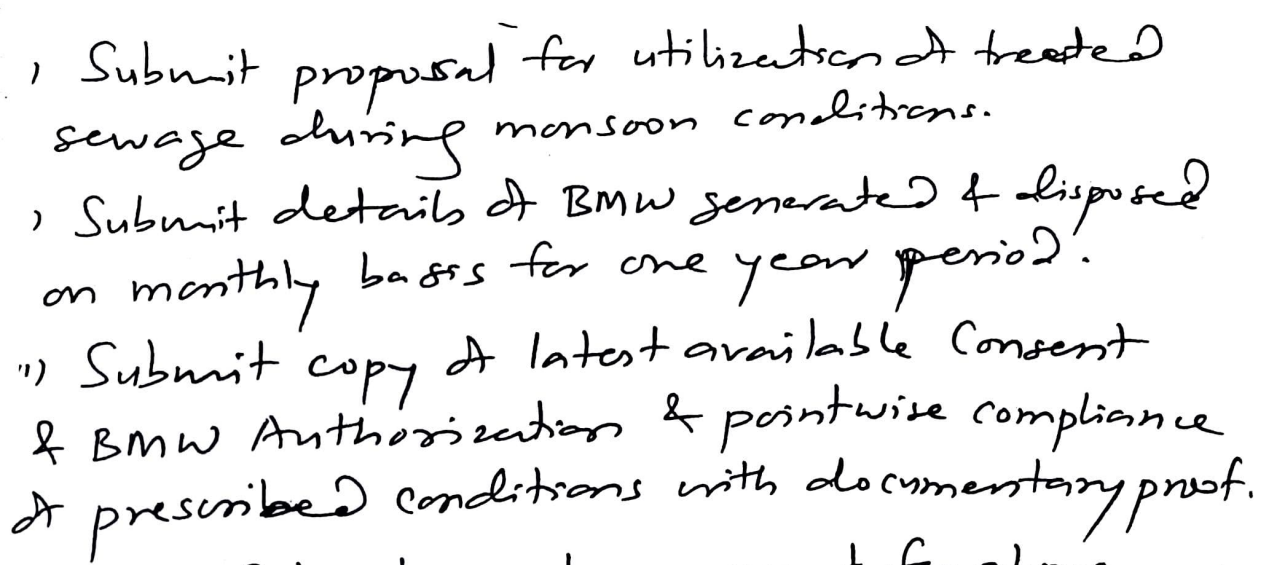 ) Submit proposal for utilization of treated
sewage during monsoon conditions.
) Submit details of BMW generated & disposed
on monthly basis for one year period.
") Submit copy of latest available Consent
& BMW Authorization & pointwise compliance
of prescribed conditions with documentary proof.